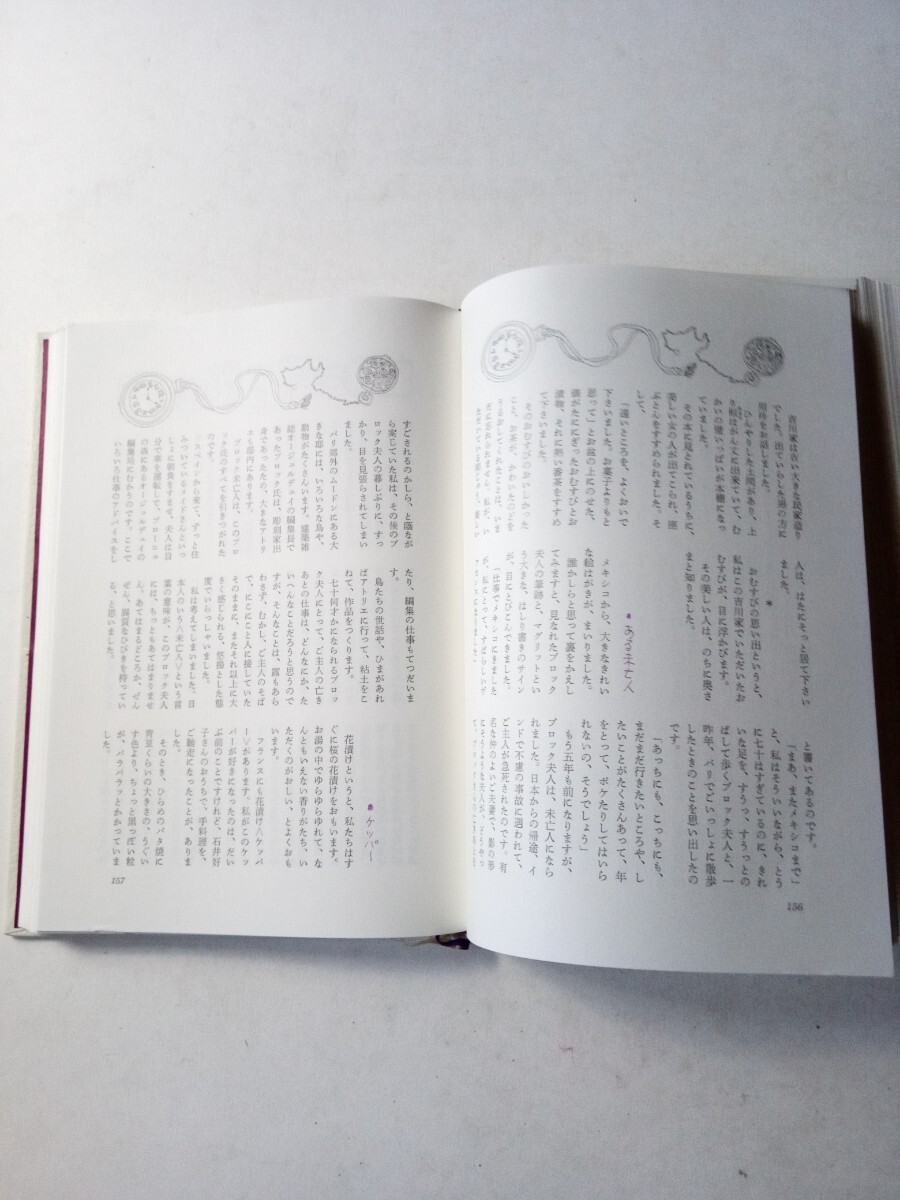 吉川家は古い大きな民家造り
でした。出ていらした男の方に
用件をお話しました。
ひんやりした土間があり、上
かいの壁いっぱいが本棚になっ
ていました。
その本に見とれているうちに、
美しい女の人が出てこられ、座
ぶとんをすすめられました。そ
して、
「遠いところを、よくおいで
下さいました。お菓子よりもと
思って」とお盆の上にのせた、
漬物、それに熱い番茶をすすめ
て下さいました。
そのおむすびのおいしかった
こと、お茶が、かわいたのどを
人は、はたにそっと居て下さい
ました。
*
おむすびの思い出というと、
私はこの吉川家でいただいたお
むすびが、目に浮かびます。
その美しい人は、のちに奥さ
まと知りました。
●ある未亡人
メキシコから、大きなきれい
な絵はがきが、まいりました。
誰かしらと思って裏をかえし
てみますと、見なれたブロック
夫人の筆跡と、マグリットとい
う大きな、はしり書きのサイン
が、目にとびこんできました。
「仕事でメキシコにきました
が、私にとって、すばらしいデ
と書いてあるのです。
「まあ、またメキシコまで」
と、私はそういいながら、とう
に七十はすぎているのに、きれ
いな足を、すうっ、すうっとの
ばして歩くブロック夫人と、一
昨年、パリでごいっしょに散歩
したときのことを思い出したの
です。
「あっちにも、こっちにも、
まだまだ行きたいところや、し
たいことがたくさんあって、年
をとって、ボケたりしてはいら
れないの、そうでしょう」
もう五年も前になりますが、
ブロック夫人は、未亡人になら
れました。日本からの帰途、イ
ンドで不慮の事故に遇われて、
ご主人が急死されたのです。有
名な仲のよいご夫妻で、影の形
にそうような夫人が、どうやっ
156
すごされるのかしら、と蔭なが
ら案じていた私は、その後のブ
ロック夫人の暮しぶりに、すっ
かり、目を見張らされてしまい
ました。
パリ郊外のムードンにある大
きな邸には、いろいろな鳥や、
動物がたくさんいます。建築雑
誌オージュルデュイの編集長で
あったブロック氏は、彫刻家出
身であったため、大きなアトリ
エも邸内にあります。
ブロック未亡人は、このブロ
ックさんの全てを引きつがれた
のです。
スペインから来て、ずっと住
みついているメイドさんといっ
しょに朝食をすませ、夫人は自
分で車を運転して、ブローニュ
の森にあるオージュルデュイの
編集局にむかうのです。ここで
いろいろ仕事のアドバイスをし
たり、編集の仕事もてつだいま
す。
鳥たちの世話や、ひまがあれ
ばアトリエに行って、粘土をこ
ねて、作品をつくります。
七十何才かになられるブロッ
ク夫人にとって、ご主人の亡き
あとの仕事は、どんなにか、た
いへんなことだろうと思うので
すが、そんなことは、露もあら
わさず、むかし、ご主人のそば
で、にこにこと人に接していた
そのままに、またそれ以上に大
きく感じられる、堅揚とした態
度でいらっしゃいました。
私は考えてしまいました。日
本人のいう〈未亡人〉という言
葉の意味が、このブロック夫人
には、ちっともあてはまりませ
ん。あてはまるどころか、ぜん
ぜん、異質なひびきを持ってい
る、と思いました。
●ケッパー
花漬けというと、私たちはす
ぐに桜の花漬けをおもいます。
お湯の中でゆらゆらゆれて、な
んともいえない香りがたち、い
ただくのがおしい、とよくおも
います。
フランスにも花漬け〈ケッパ
ー〉があります。私がこのケッ
パーが好きになったのは、だい
ぶ前のことですけれど、石井好
子さんのおうちで、手料理を、
ご馳走になったことが、ありま
した。
そのとき、ひらめのバタ焼に
青豆くらいの大きさの、うぐい
す色より、ちょっと黒っぽい粒
が、パラパラッとかかっていま
した。
157